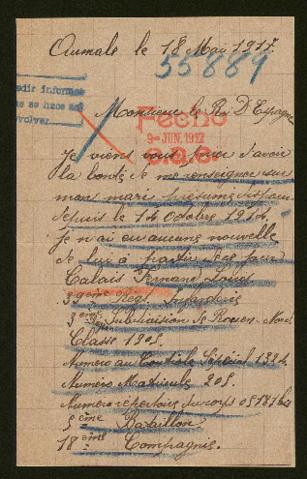 Aumale le 18 Mai 1917.
55889
Pedir informes
se hace
devolver
Monsieur le Roi D'Espagne
Fecho
9-JUN.1917
Je viens vous prier d'avoir
la bonté de me renseigner sur
mon mari présumé disparu
depuis le 14 Octobre 1914.
Je n'ai eu aucune nouvelle
de lui à partir de ce jour
Calais Fernand Louis
39ème Regt Infanterie
3ème Subdivision de Rouen-Nord
Classe 1905.
Numéro au Contrôle Spécial 1324
Numéro Matricule 205.
Numéro répertoire du corps 05181
5ème Bataillon
18ème Compagnie.